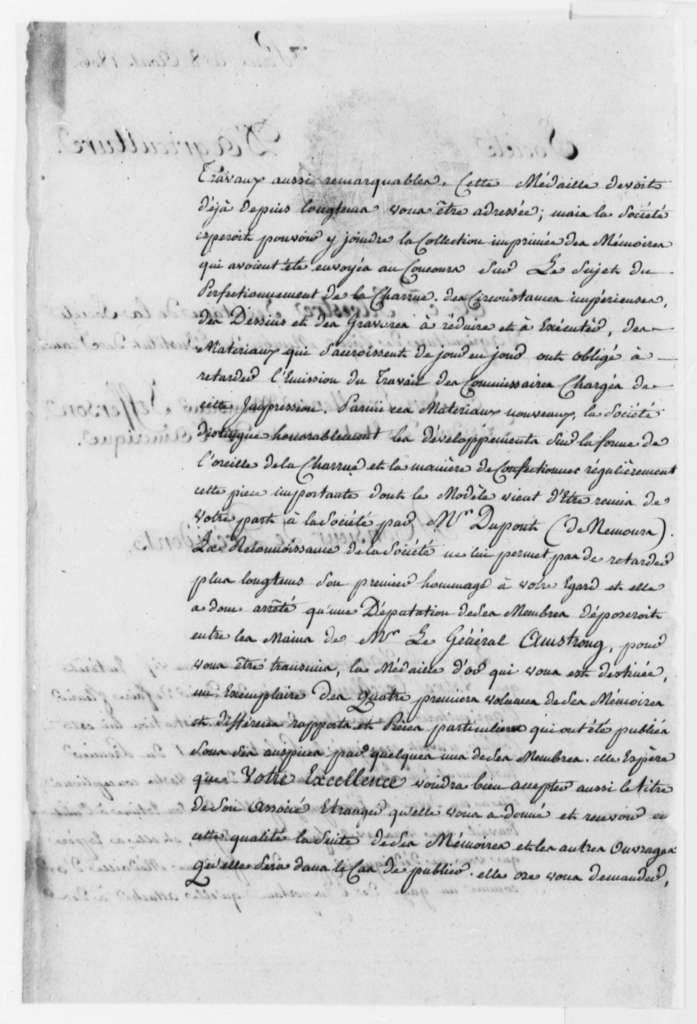 Travaux aussi remarquables. Cette Médaille devoit
déjà depuis longtems vous être adressée; mais la Société
esperoit pouvoir y joindre la Collection imprimée des Mémoires
qui avoient été envoyés au Concours Sur Le Sujet du
Perfectionnement de la Charrue. des Circonstances impérieuses,
des Dessins et des Gravures à réduire et à Exécuter, des
Matériaux qui S'accroissent de jour en jour ont obligé à
retarder l'Emission du Travail des Commissaires Chargés de
cette Impression. Parmi ces Matériaux nouveaux, la Société
distingue honorablement les développements Sur la forme de
l'oreille de la Charrue et la manière de Confectionner régulièrement
cette pièce importante dont le Modèle vient d'Etre remis de
Votre part à la Société par Mr. Dupont (de Nemours).
La Reconnoissance de la Société ne lui permet pas de retarder
plus longtems Son premier hommage à votre Egard et elle
a donc arrêté qu'une Députation de Ses Membres déposeroit
entre les Mains de Mr. Le Général Amstrong, pour
vous être transmis, la Médaille d'or qui vous est destinée,
un Exemplaire des Quatre premiers volumes de Ses Mémoires
et différens rapports et Pièces particulières qui ont été publiés
Sous Ses auspices par quelques uns de Ses Membres. elle Espère
que Votre Excellence voudra bien accepter aussi le titre
de Son associé Etranger qu'elle vous a donné et recevoir en
cette qualité la Suite de Ses Mémoires et les autres Ouvrages
Qu'elle Sera dans le Cas de publier. elle ose vous demander,